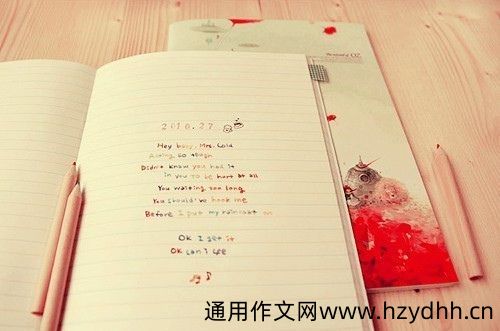 2010.27
Hey baby, Mrs. Cold
Acting so tough
Didn't know you had it
in you to be hurt at all
You waiting too long
You should've hook me
Before I put my raincoat on
OK I get it
OK can I see
通用作文网www.hzydhh.cn